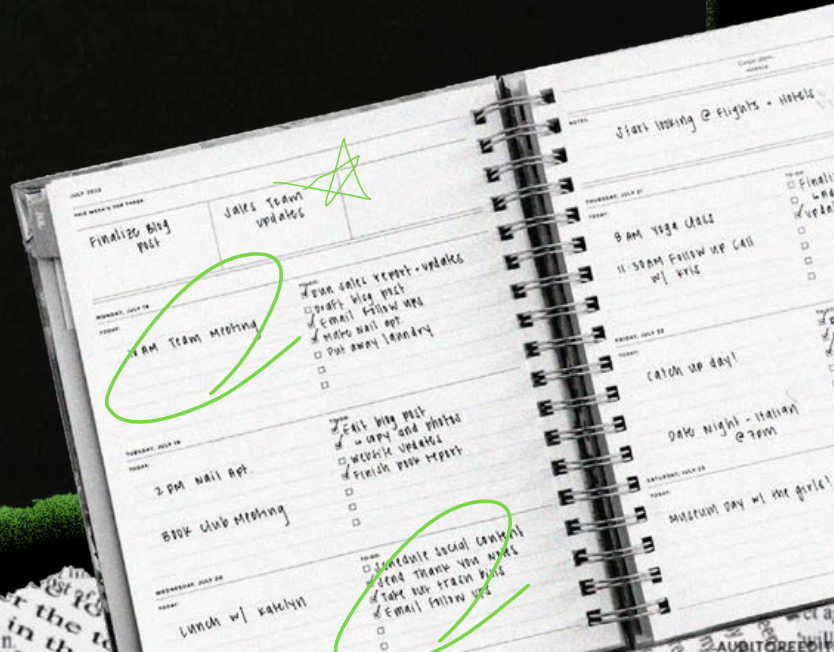 JULY 2022
THIS WEEK'S TOP THREE
Finalize Blog
post
Sales Team
updates
MONDAY, JULY 18
TODAY:
AM Team Meeting
TO-DO:
Run sales report + updates
Draft blog post
Email follow ups
Make nail apt.
Put away laundry
TUESDAY, JULY 19
TODAY:
2 PM Nail Apt.
Book Club Meeting
TO-DO:
Edit blog post
↳ copy and photos
Website updates
Finish book report
WEDNESDAY, JULY 20
TODAY:
Lunch w/ Katelyn
TO-DO:
Schedule social content
Send Thank you notes
Take out trash bins
Email follow ups
Carpe diem.
HORACE
NOTES:
Start looking @ Flights + Hotels
THURSDAY, JULY 21
TODAY:
8 AM Yoga Class
11:30AM Follow up Call
w/ Kris
TO-DO:
Finali
FRIDAY, JULY 22
TODAY:
Catch up day!
Date Night - Italian
@ 7pm
SATURDAY, JULY 23
TODAY:
Museum Day w/ the girls!
r the to
in th
AUDITOREEDIT